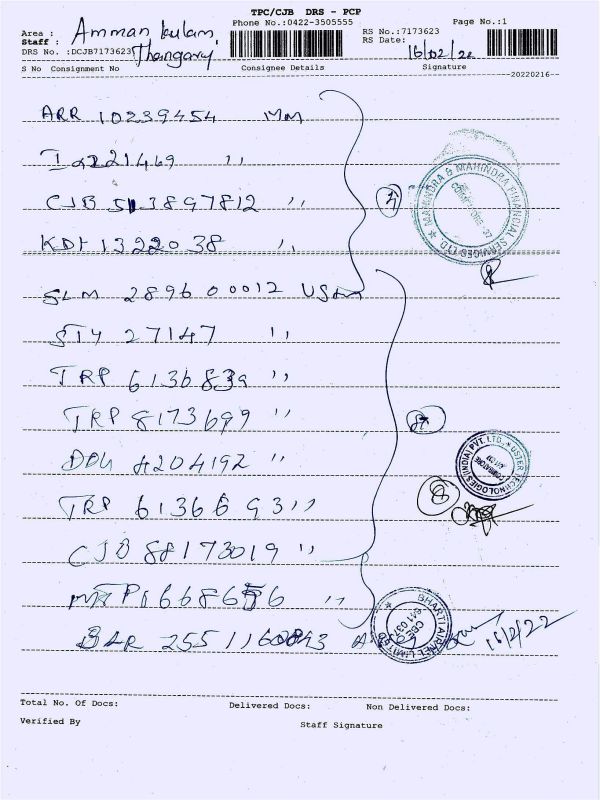 TPC/CJB DRS - PCP
Phone No.:0422-3505555
Page No.:1
Area : Amman kulam,
Staff :
DRS No. :DCJB7173623
RS No.:7173623
RS Date: 16/02/22
S No Consignment No Consignee Details Signature
20220216
ARR 10239454 MM
CJB 513897812 ,,
KDI 1322038 ,,
SLM 289600012
STY 27147 ,,
TRP 6136839 ,,
TRP 8173699 ,,
4204192 ,,
TRP 6136693 ,,
CJB 88173019 ,,
MAHINDRA & MAHINDRA FINANCIAL SERVICES LTD
USTER TECHNOLOGIES (INDIA) PVT. LTD.
COIMBATORE
BHARTI AIRTEL LIMITED
16/2/22
Total No. Of Docs: Delivered Docs: Non Delivered Docs:
Verified By Staff Signature